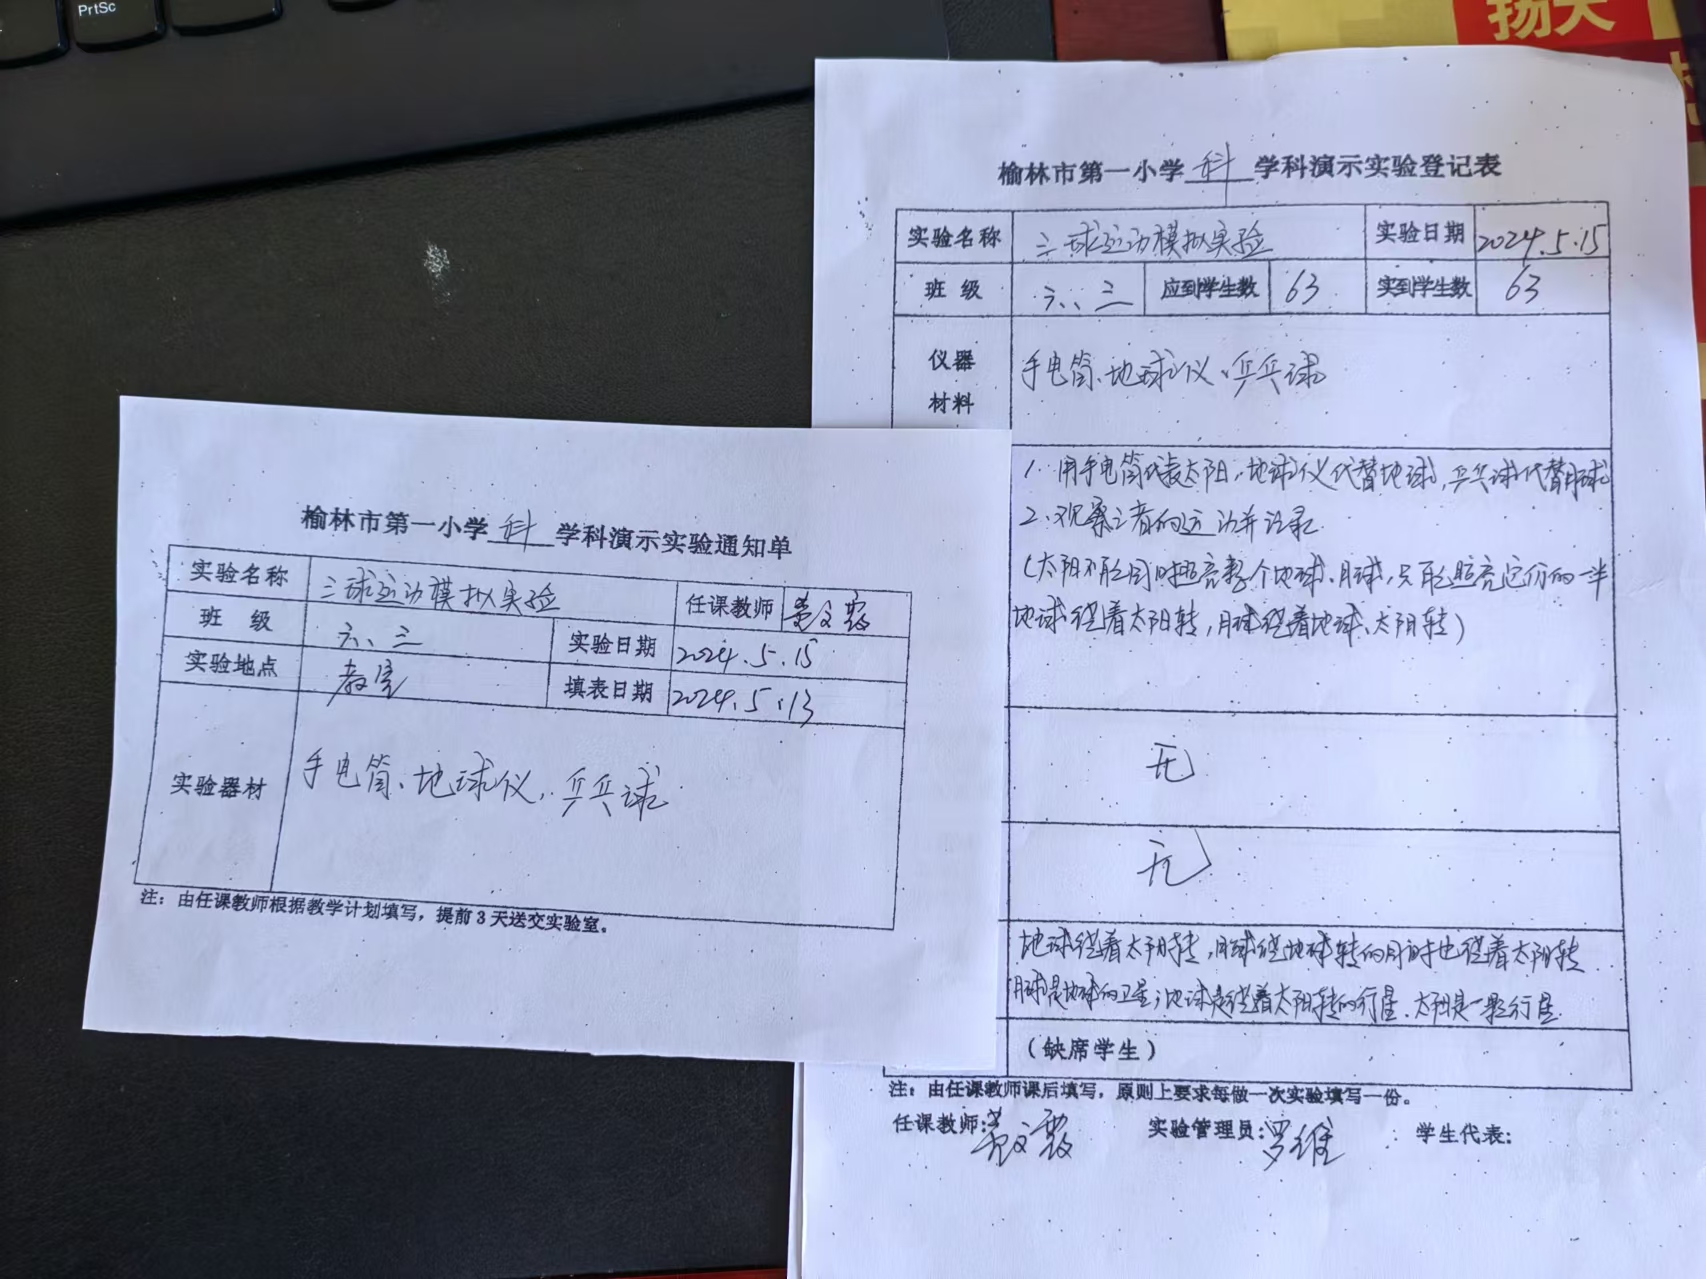 PrtSc
扬天
榆林市第一小学 科 学科演示实验登记表
实验名称 三球运动模拟实验 实验日期 2024.5.15
班 级 六、三 应到学生数 63 实到学生数 63
仪器
材料
手电筒、地球仪、乒乓球
1. 用手电筒代表太阳,地球仪代替地球,乒乓球代替月球
2、观察三者的运动并记录
(太阳不能同时照亮整个地球、月球,只能照亮它们的一半
地球绕着太阳转,月球绕着地球、太阳转)
无
无
地球绕着太阳转,月球绕地球转的同时也绕着太阳转
月球是地球的卫星;地球是绕着太阳转的行星.太阳是一颗行星.
(缺席学生)
注:由任课教师课后填写,原则上要求每做一次实验填写一份。
任课教师: 实验管理员:罗维 学生代表:
榆林市第一小学 科 学科演示实验通知单
实验名称 三球运动模拟实验 任课教师
班 级 六、三 实验日期 2024.5.15
实验地点 教室 填表日期 2024.5.13
实验器材 手电筒、地球仪,乒乓球
注:由任课教师根据教学计划填写,提前3天送交实验室。